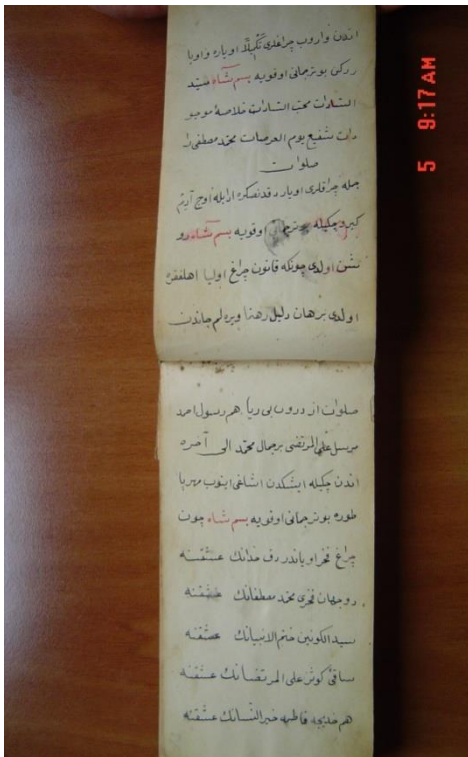 اندن واروب چراغدی تكبیلًا اویاره واویا
ردكی بوترجمانی اوقویه بسم شاه سید
السادات محب السادات خلاصهٔ موجو
دات شفیع یوم العرصات محمد مصطفی را
صلوات
جمله چراقلری اویار دقدنصكره ارایله اوچ آدیم
كیرو چكیله بوترجمانی اوقویه بسم شاه رو
شن اولدی چونكه قانون چراغ اولیا اهلفقره
اولدی برهان دلیل رهنما ویره لم جاندن
صلوات از درون بی ریا هم رسول احمد
مرسل علی المرتضی بر جمال محمد الی آخره
اندن چكیله ایشكدن اشاغی اینوب مهرپا
طوره بوترجمانی اوقویه بسم شاه چون
چراغ فخر اویاندردق خدانك عشقنه
دوجهان فخری محمد مصطفانك عشقنه
سید الكونین ختم الانبیانك عشقنه
ساقیٔ كوثر علی المرتضانك عشقنه
هم خدیجه فاطمه خیر النسانك عشقنه
5 9:17AM